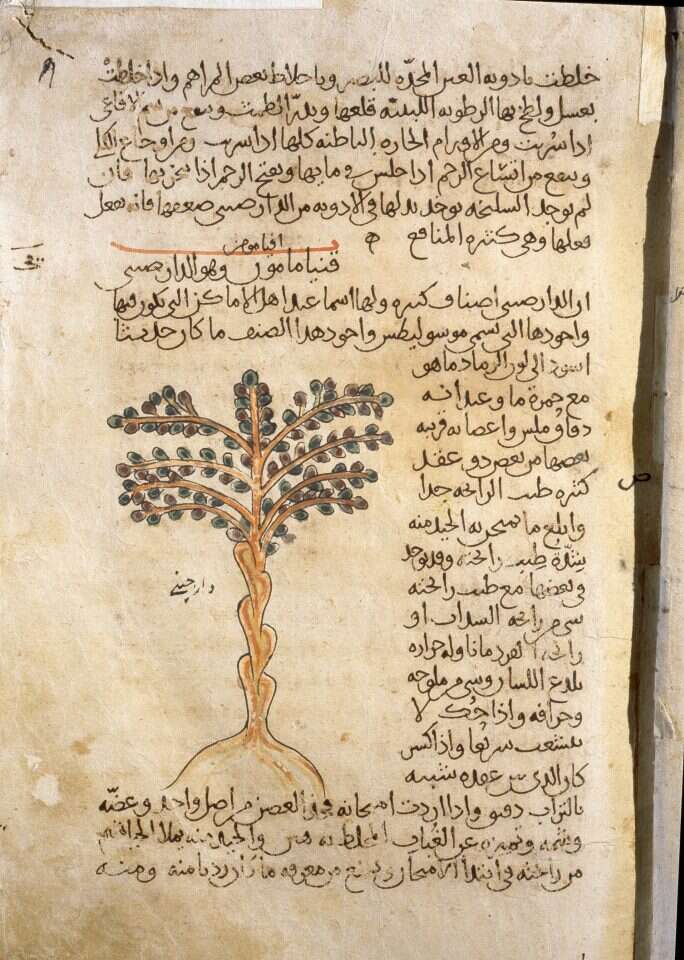 خلطت بادويه العين المحده للبصر وباخلاط بعض المراهم واذا خلطت
بعسل ولطخ بها الرطوبه اللبنيه قلعها ويدر الطمث وينفع من سم الافاعى
اذا شربت ومن الاورام الحاره الباطنه كلها اذا شربت ومن اوجاع الكلى
وينفع من اتساع الرحم اذا جلس فى مايها ويفتح الرحم اذا تدخن بها فان
لم يوجد السليخه يوخذ بدلها فى الادويه من الدارصينى ضعفها فانه يفعل
فعلها وهى كثيره المنافع
قنياماموں وهو الدارصينى
ان الدارصينى اصناف كثيره ولها اسما عند اهل الاماكن التى يكون فيها
واجودها التى تسمى موسوليطس واجود هذا الصنف ما كان حديثا
اسود الى لون الرماد ما هو
مع حمرة ما وعيدانه
دقاق ملس واغصانه قريبه
بعضها من بعض ذو عقد
كثيره طيب الرائحه جدا
وابلغ ما يمتحن به الجيد منه
شدّة طيب رائحته وقد يوجد
فى بعضها مع طيب رائحته
شى من رائحه السداب او
رائحه القردمانا وله حراره
يلدع اللسان وشى من ملوحه
وحرافه واذا حك لا
يتشعب سريعا واذا كسر
كان الذى بين عقده شبيه
بالتراب دقيق واذا اردت امتحانه فخذ الغصن من اصل واحد
من رائحته فى ابتدا الامتحان يمنع من معرفه ما كان رديا منه ومنه
دارچينى